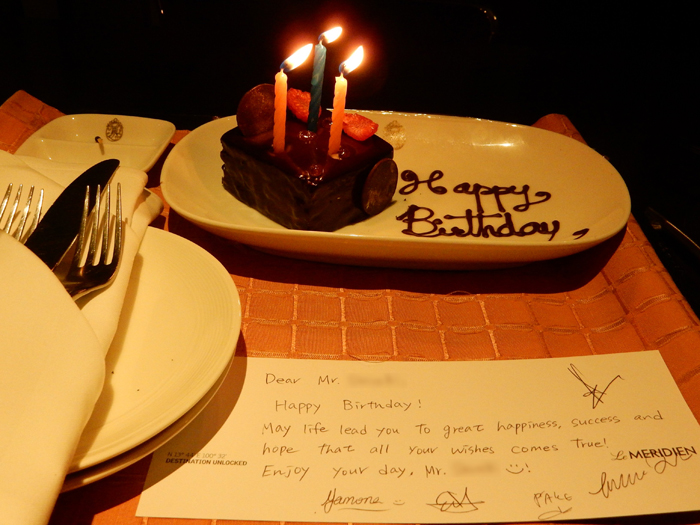 Happy
Birthday
Dear Mr.
Happy Birthday!
May life lead you to great happiness, success and
hope that all your wishes comes true!
Enjoy your day, Mr.
Le MERIDIEN
DESTINATION UNLOCKED